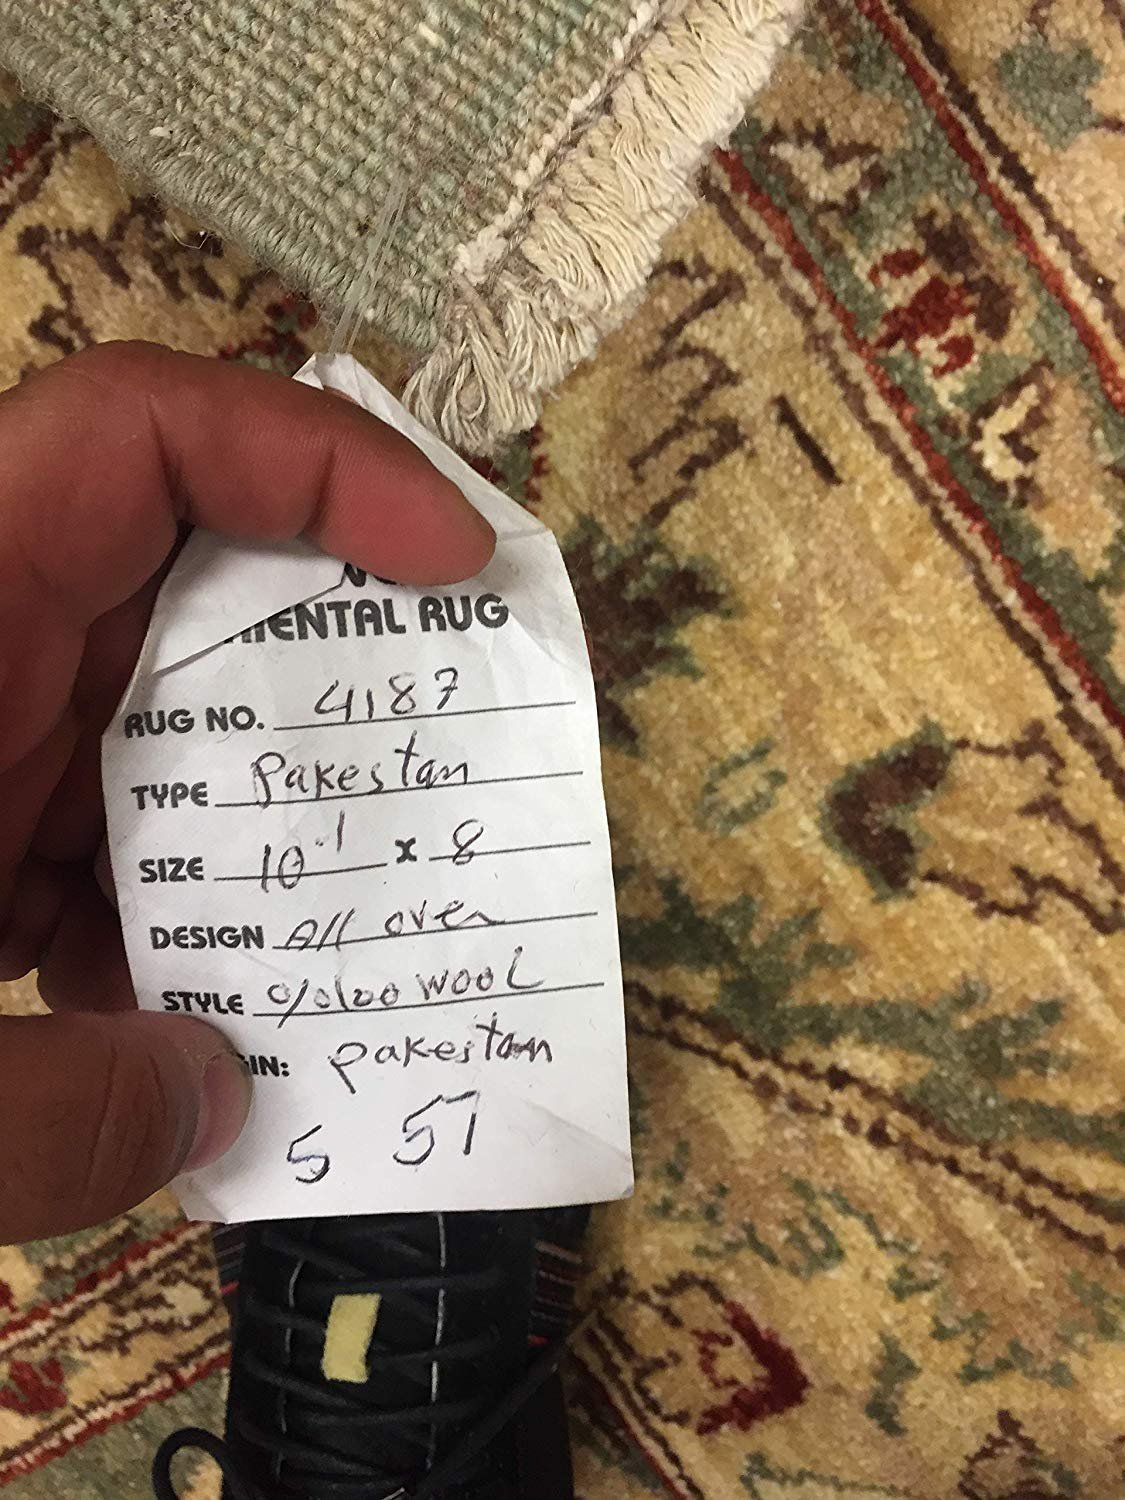 RIENTAL RUG
RUG NO. 4187
TYPE Pakestan
SIZE 10-1 x 8
DESIGN All over
STYLE %100 WOOL
GIN: pakestan
5 57